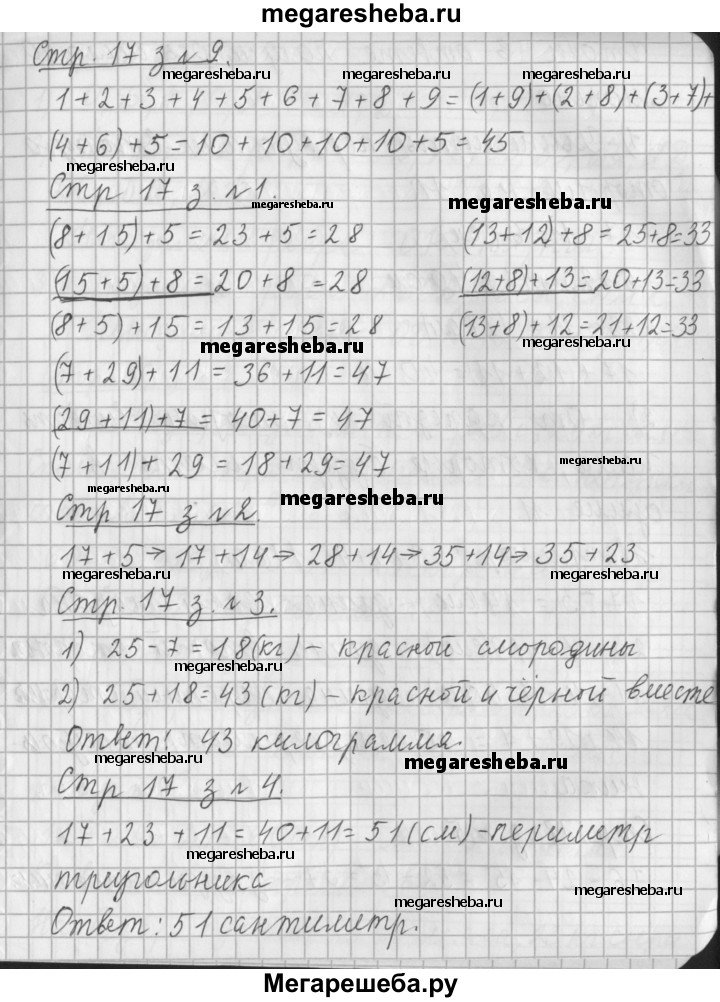 megaresheba.ru
Стр. 17 з №9.
megaresheba.ru megaresheba.ru megaresheba.ru
1+2+3+4+5+6+7+8+9=(1+9)+(2+8)+(3+7)+
(4+6)+5=10+10+10+10+5=45
megaresheba.ru
Стр 17 з. №1.
megaresheba.ru megaresheba.ru
(8+15)+5=23+5=28 (13+12)+8=25+8=33
(15+5)+8=20+8=28 (12+8)+13=20+13=33
(8+5)+15=13+15=28 (13+8)+12=21+12=33
megaresheba.ru
(7+29)+11=36+11=47
(29+11)+7=40+7=47
(7+11)+29=18+29=47
megaresheba.ru
megaresheba.ru
megaresheba.ru
Стр 17 з №2
17+5→17+14→28+14→35+14→35+23
megaresheba.ru megaresheba.ru
Стр. 17 з. №3.
1) 25-7=18(кг) - красной смородины
megaresheba.ru
2) 25+18=43(кг) - красной и чёрной вместе
Ответ: 43 килограмма.
megaresheba.ru megaresheba.ru
Стр 17 з №4.
17+23+11=40+11=51(см) - периметр
megaresheba.ru
треугольника
megaresheba.ru megaresheba.ru
Ответ: 51 сантиметр.
Мегарешеба.ру